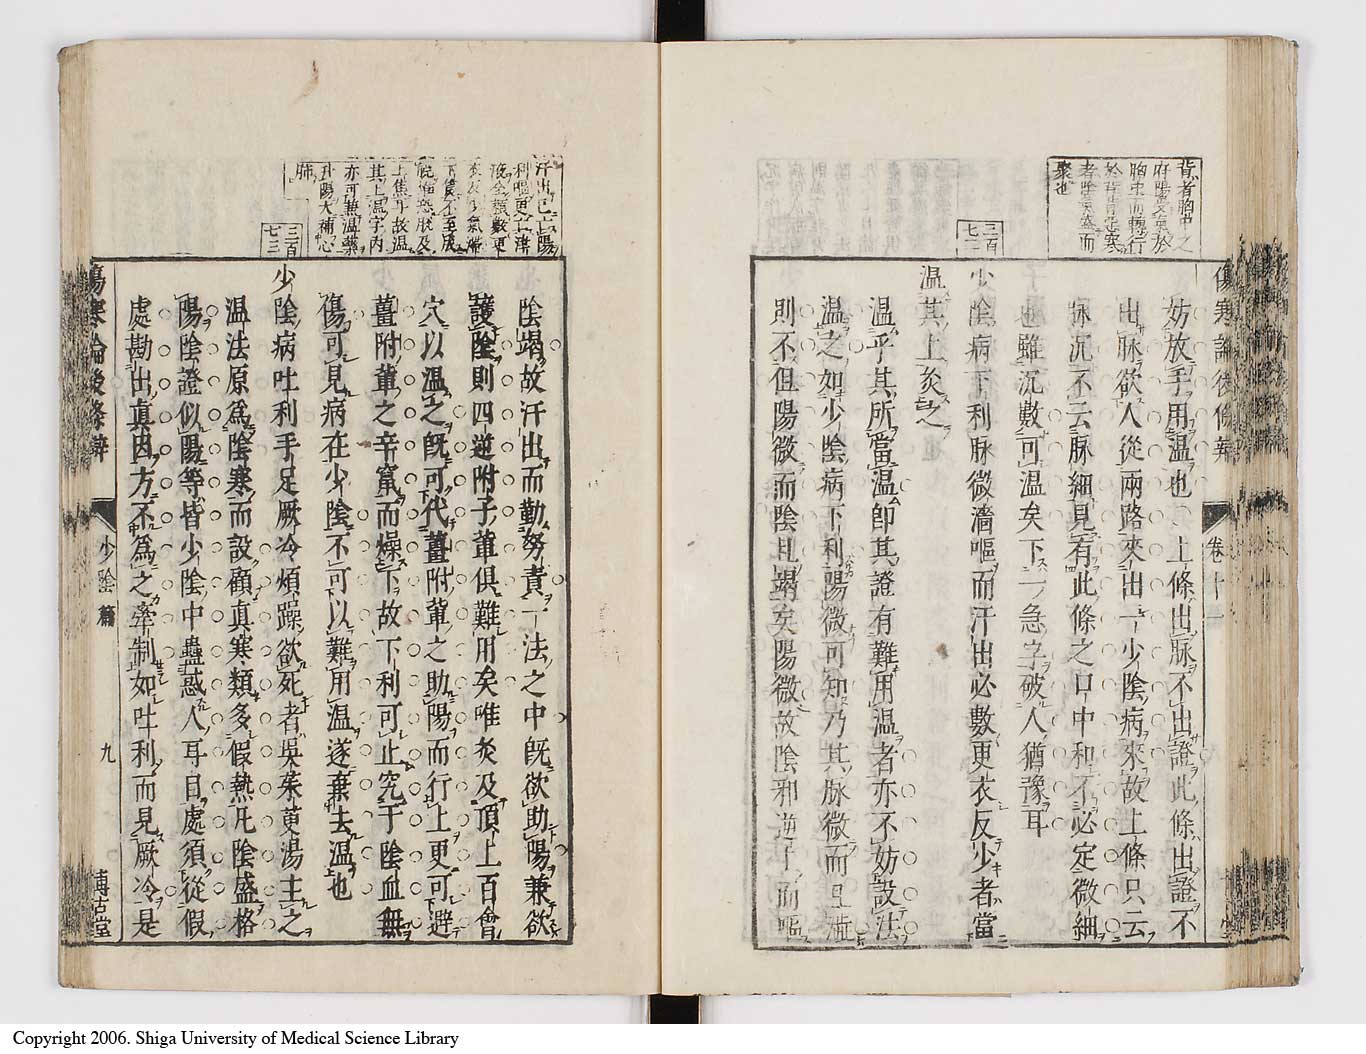 背者胸中之
府陽受氣於
胸中而轉行
於背背惡寒
者陰氣盛而
聚也
三百
七二
傷寒論後條辨
卷十二
妨放手用温也上條出脉不出證此條出證不
出脉欲人從兩路夾出一少陰病來故上條只云
脉沉不云脉細見有此條之口中和不必定微細
也雖沉數可温矣下一急字破人猶豫耳
少陰病下利脉微濇嘔而汗出必數更衣反少者當
温其上灸之
温乎其所當温卽其證有難用温者亦不妨設法
温之如少陰病下利陽微可知乃其脉微而且濇
則不但陽微而陰且竭矣陽微故陰邪逆上而嘔
汗出已亡陽
利嘔更亡津
液全賴數更
衣反少氣
下焦不至
上焦平故温
其上温字内
亦可兼温藥
升陽大補心
肺
三百
七三
陰竭故汗出而勤努責一法之中旣欲助陽兼欲
護陰則四逆附子輩俱難用矣唯灸及頂上百會
穴以温之旣可代薑附輩之助陽而行上更可避
薑附輩之辛竄而燥下故下利可止究于陰血無
傷可見病在少陰不可以難用温遂棄去温也
少陰病吐利手足厥冷煩躁欲死者吳茱萸湯主之
温法原爲陰寒而設顧真寒類多假熱凡陰盛格
陽陰證似陽等皆少陰中蠱惑人耳目處須從假
處勘出真因方不爲之牽制如吐利而見厥冷是
傷寒論後條辨
少陰篇
九
博古堂
Copyright 2006. Shiga University of Medical Science Library